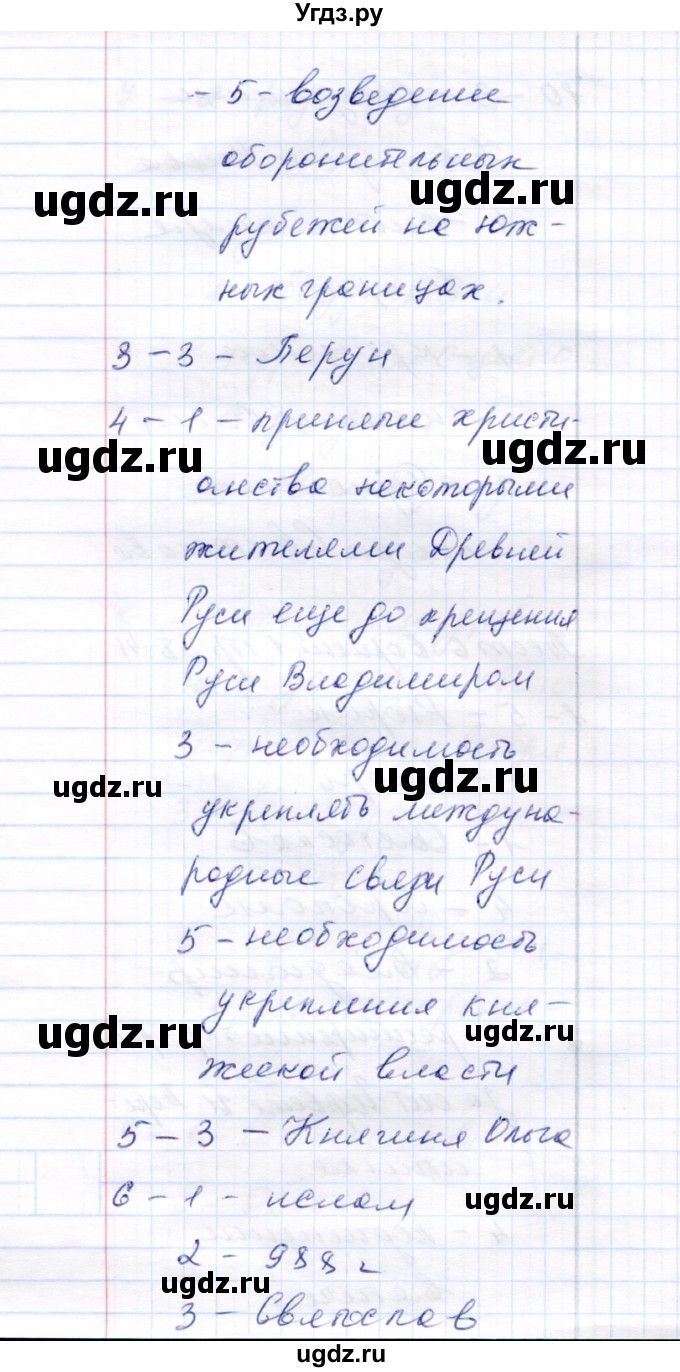 Угдз.ру
- 5 - возведение
оборонительных
ugdz.ru
ugdz.ru
рубежей на юж-
ных границах.
3 - 3 - Перун
4 - 1 - принятие христи-
ugdz.ru
ugdz.ru
анства некоторыми
жителями Древней
Руси еще до крещения
Руси Владимиром
3 - необходимость
ugdz.ru
ugdz.ru
укреплять междуна-
родные связи Руси
5 - необходимость
укрепления кня-
ugdz.ru
ugdz.ru
жеской власти
5 - 3 - Княгиня Ольга
6 - 1 - ислам
ugdz.ru
2 - 988 г
ugdz.ru
3 - Святослав
ugdz.ru